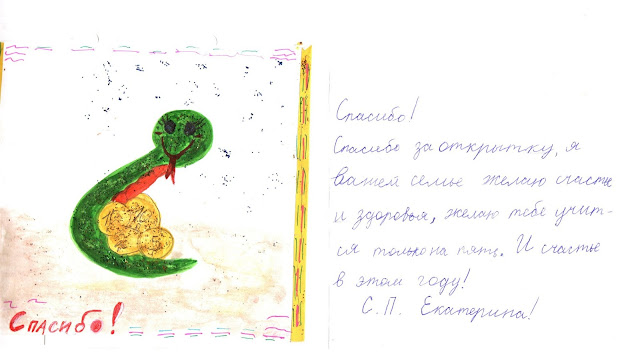 Спасибо!
Спасибо!
Спасибо за открытку, я
вашей семье желаю счастье
и здоровья, желаю тебе учит-
ся только на пятц. И счастье
в этом году!
С. П. Екатерина!